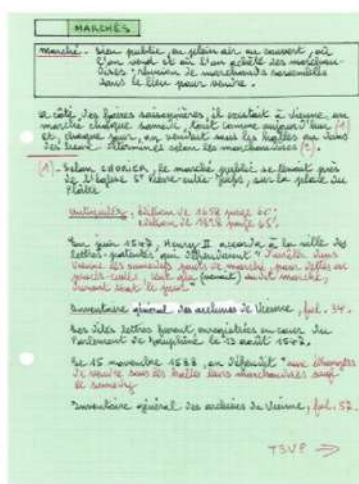 MARCHÉS
Marché.- Lieu public, en plein air ou couvert, où
l'on vend et où l'on achète des marchan-
dises; réunion de marchands rassemblés
dans le lieu pour vendre.
A côté des foires saisonnières, il existait à Vienne, un
marché chaque samedi, tout comme aujourd'hui (1)
et, chaque jour, on vendait sous les halles ou dans
des lieux déterminés selon les marchandises (2).
(1)- Selon CHORIER, le marché public se tenait près
de l'église St Pierre-entre-Juifs, sur la place du
Plâtre
Antiquités, édition de 1658 page 60
édition de 1828 page 65
En juin 1547, Henry II accorda à la ville des
lettres-patentes qui défendaient
Vienne les samedis jours de marché, pour dettes ou
procès civils, tant que marché,
durant tout le jour"
Inventaire général des archives de Vienne, fol. 34.
Les dites lettres furent enregistrées en cour du
Parlement de Dauphiné le 13 août 1547.
Le 15 novembre 1588, on défendit "aux étrangers
de vendre sous les halles leurs marchandises sauf
le samedy
Inventaire général des archives de Vienne, fol. 52.
TSVP →